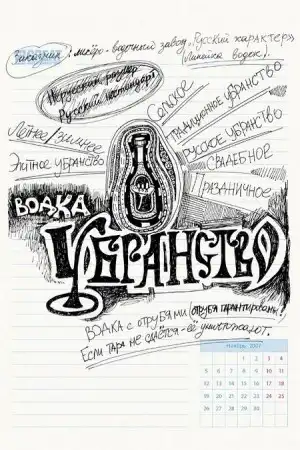 Заказчик: ликёро-водочный завод „Русский характер»
(Линейка водок).
Нерусский размер
Русский нестандарт
Сельское
убранство
Русское убранство
Свадебное
Праздничное
Летнее/зимнее
Элитное убранство
ВОДКА
Убранство
Водка с отрубями (отрубя гарантированы!
Если тара не сдаётся - её уничтожают.
Ноябрь 2007
1 2 3 4
5 6 7 8 9 10 11
12 13 14 15 16 17 18
19 20 21 22 23 24 25
26 27 28 29 30